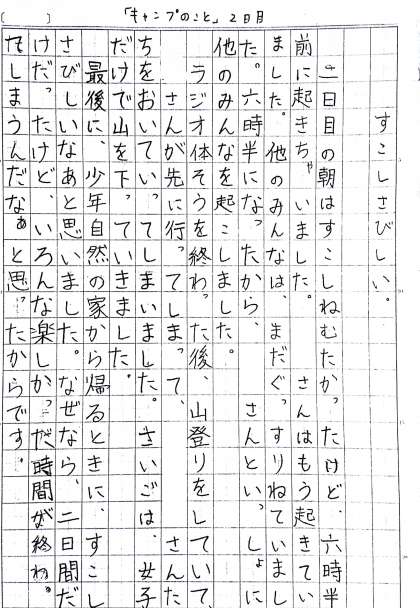 「キャンプのこと」2日目
すこしさびしい。
二日目の朝はすこしねむたかったけど、六時半
前に起きちゃいました。　　さんはもう起きてい
ました。他のみんなは、まだぐっすりねていまし
た。六時半になったから、　　さんといっしょに
他のみんなを起こしました。
ラジオ体そうを終わった後、山登りをしていて、
　　さんが先に行ってしまって、　　さんた
ちをおいていってしまいました。さいごは、女子
だけで山を下っていきました。
最後に、少年自然の家から帰るときに、すこし
さびしいなあと思いました。なぜなら、二日間だ
けだったけど、いろんな楽しかっだ時間が終わっ
てしまうんだなぁと思ったからです。